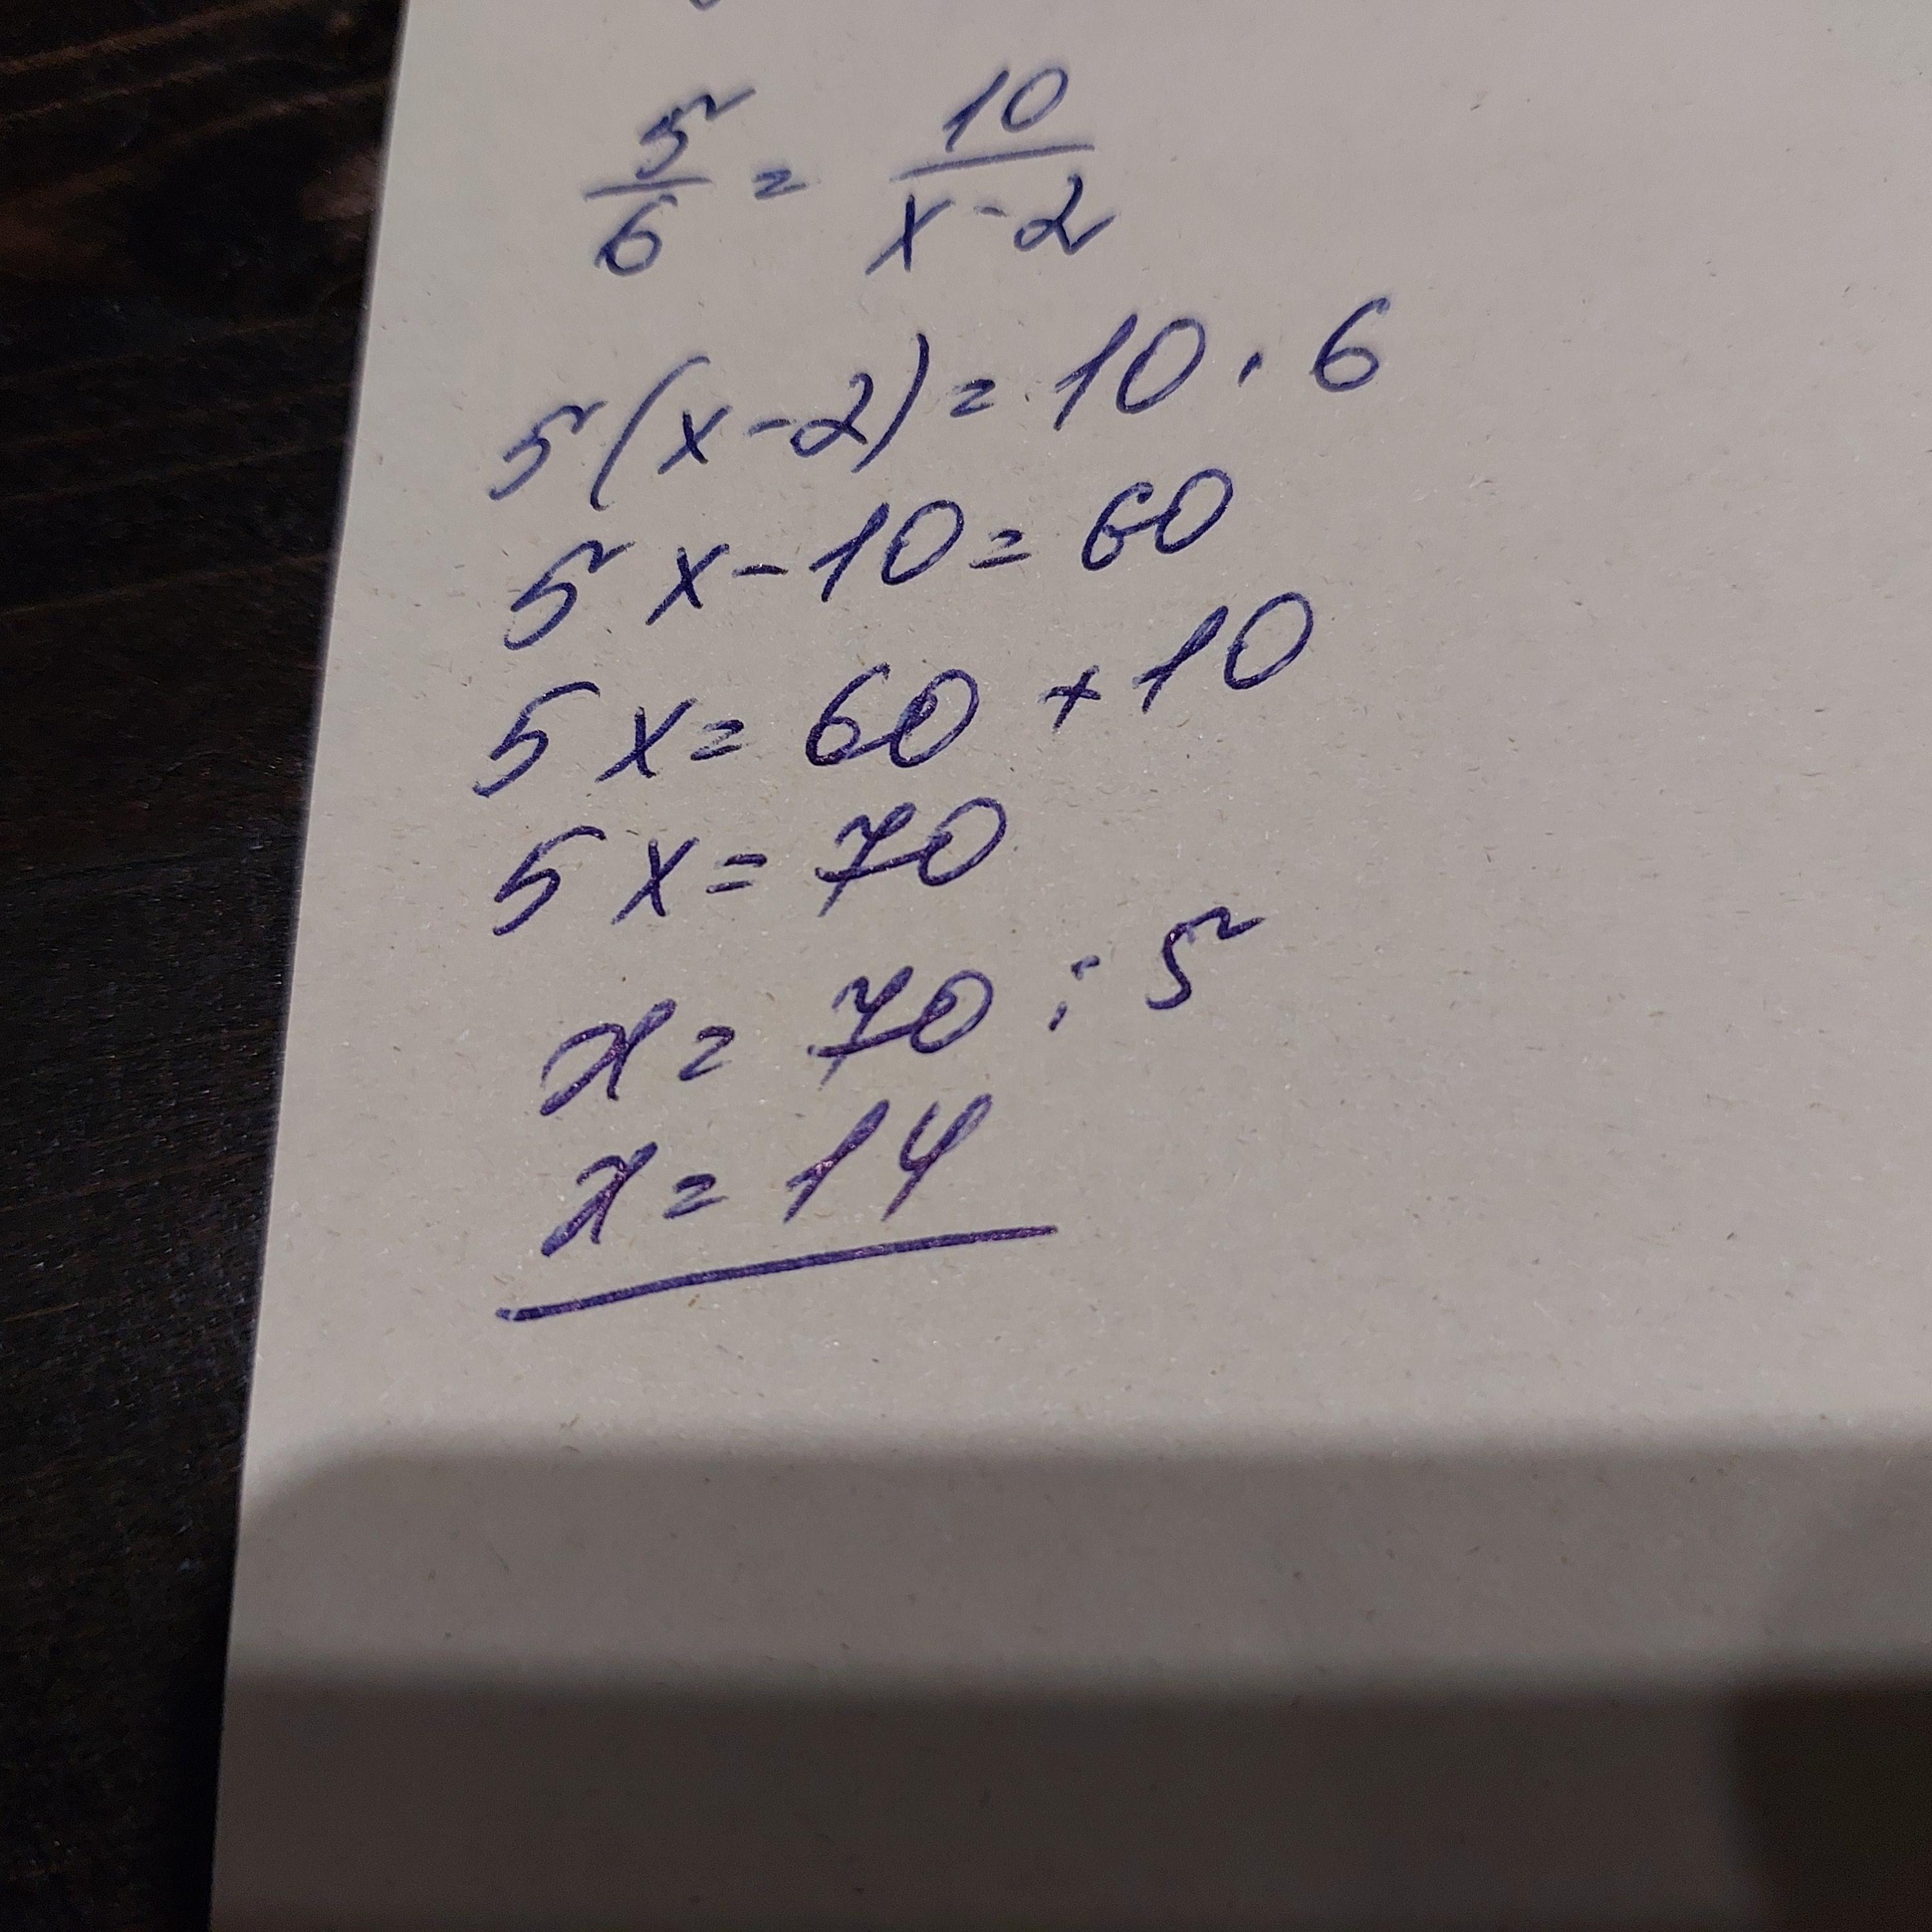 5/6 = 10/(x-2)
5(x-2) = 10 · 6
5x-10 = 60
5x = 60 + 10
5x = 70
x = 70 : 5
x = 14